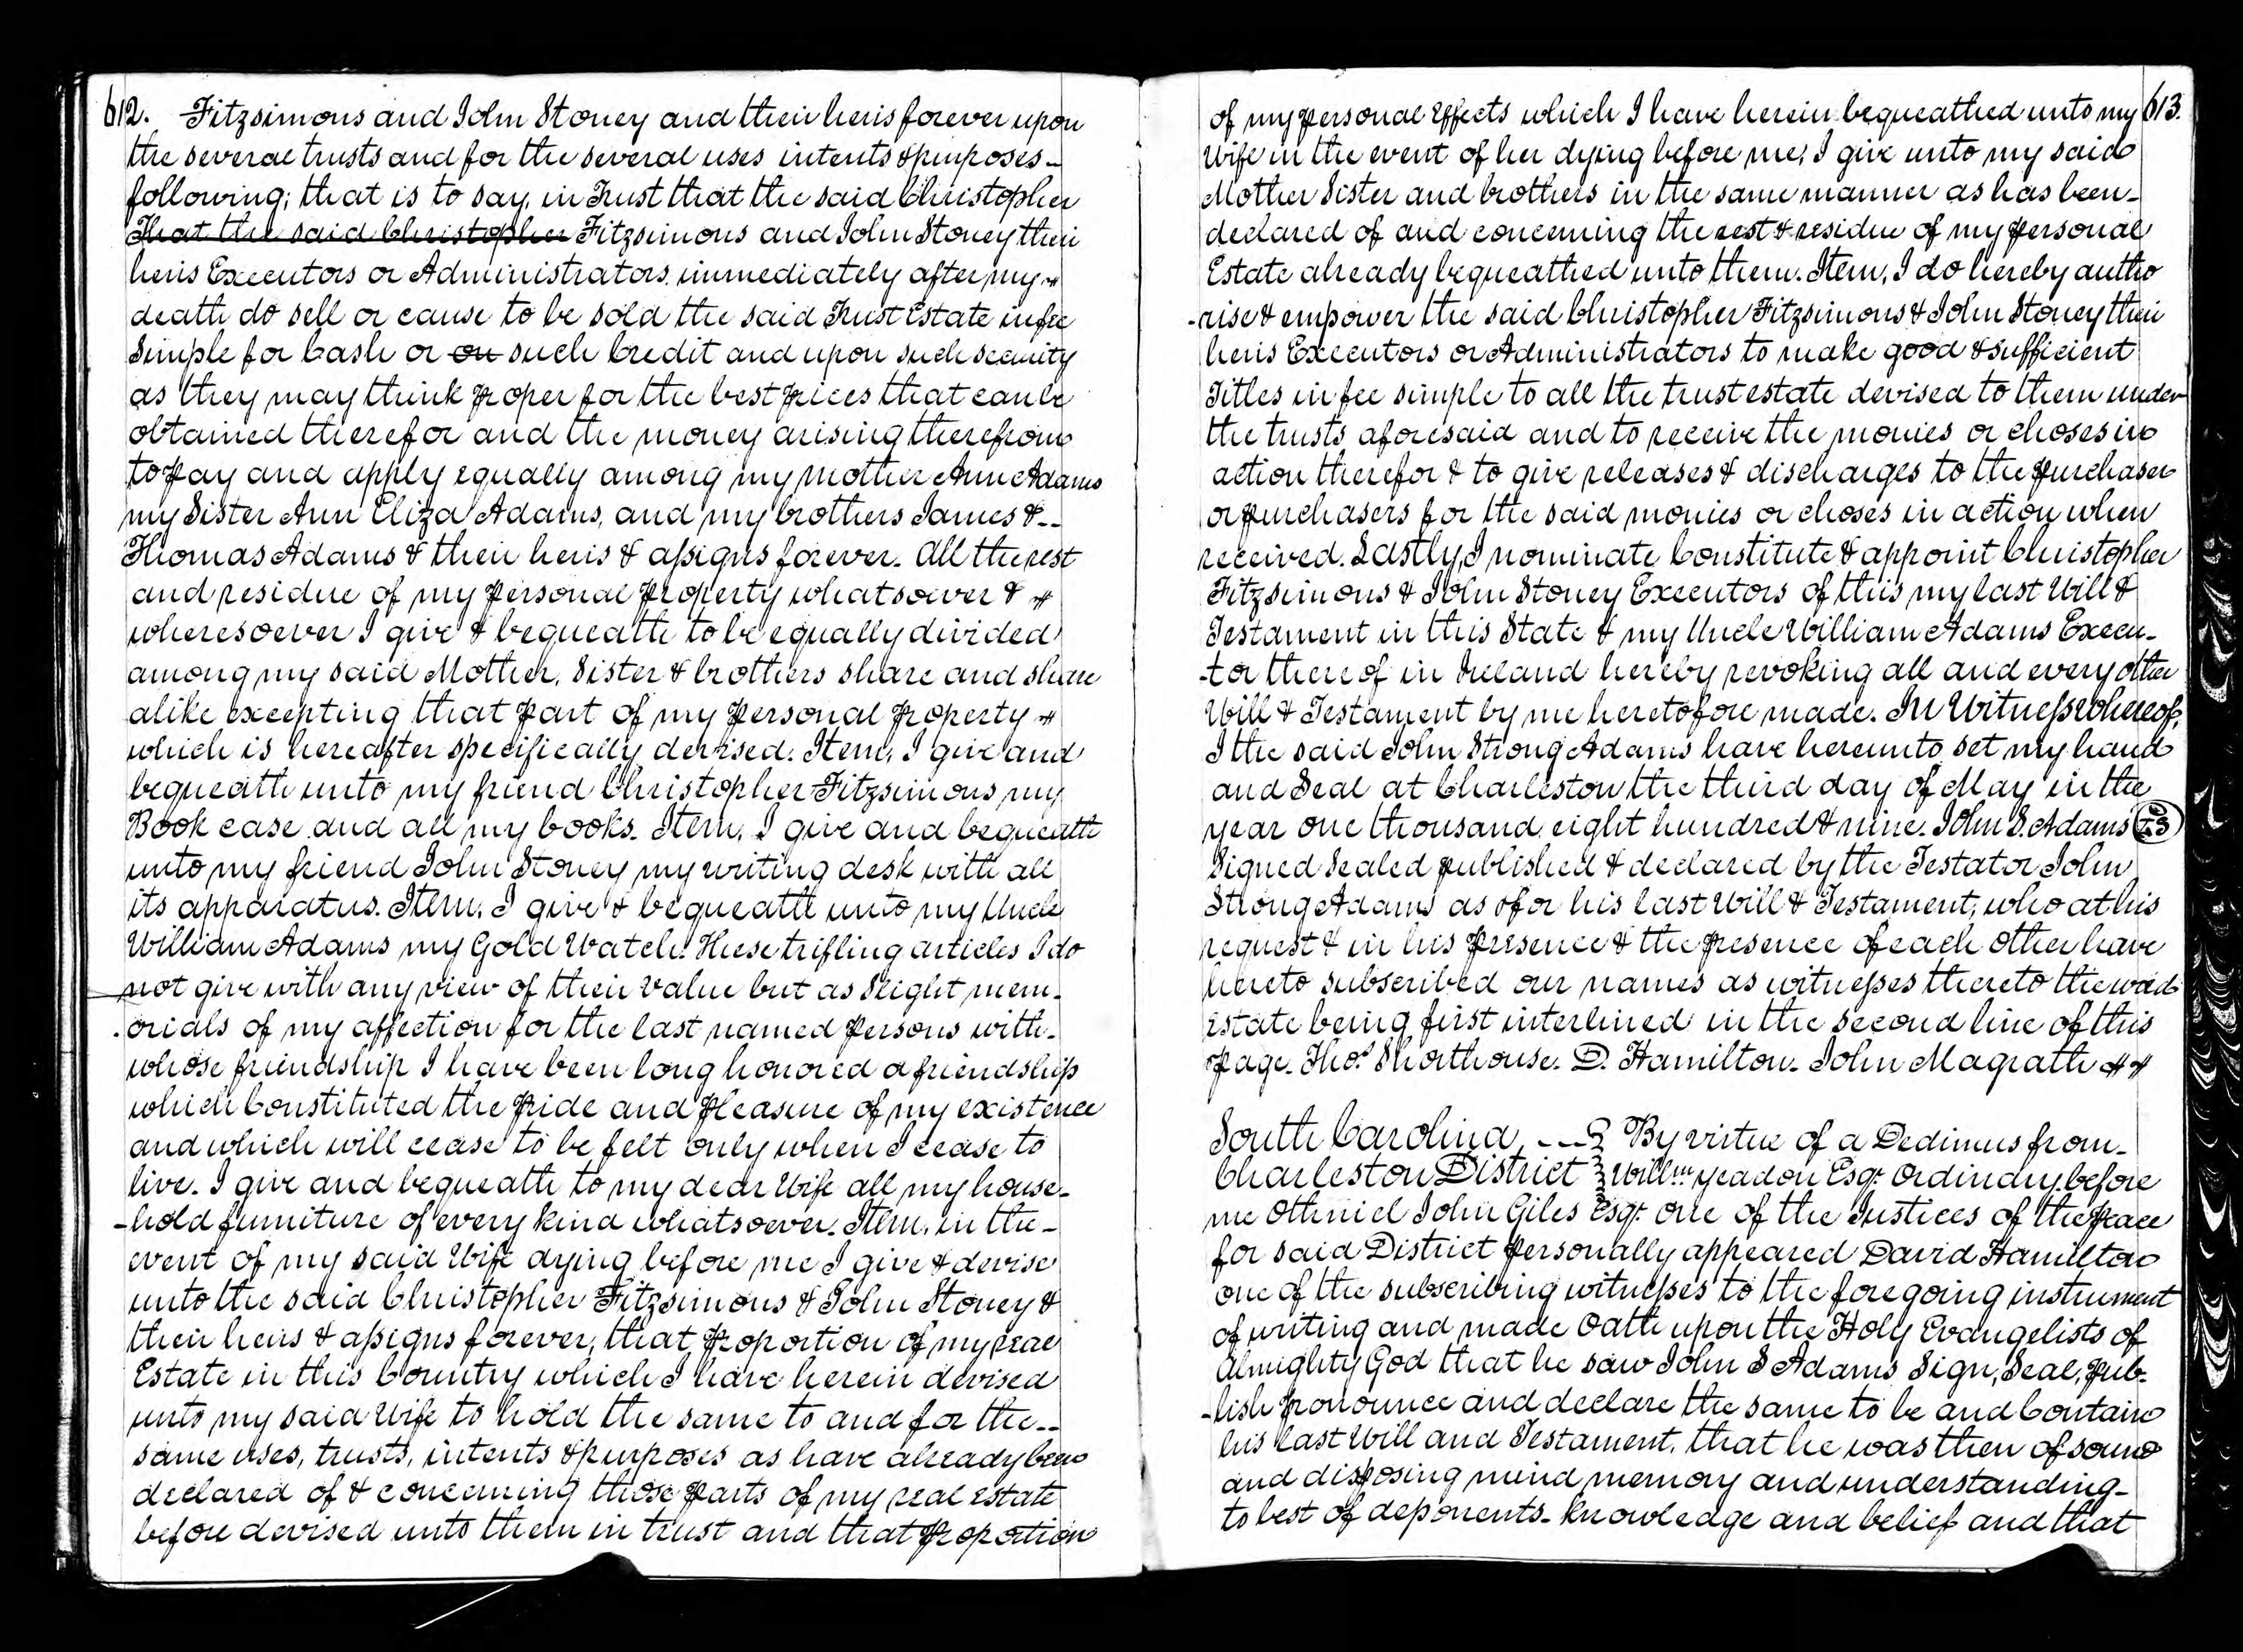 612. Fitzsimons and John Stoney and their heirs forever upon
the several trusts and for the several uses intents & purposes -
following; that is to say, in Trust that the said Christopher
That the said Christopher Fitzsimons and John Stoney their
heirs Executors or Administrators immediately after my
death do sell or cause to be sold the said Trust Estate in fee
Simple for Cash or on such Credit and upon such security
as they may think proper for the best prices that can be
obtained therefor and the money arising therefrom
to pay and apply equally among my mother Ann Adams
my Sister Ann Eliza Adams, and my brothers James & --
Thomas Adams & their heirs & assigns forever. All the rest
and residue of my personal property whatsoever &
wheresoever I give & bequeath to be equally divided
among my said Mother, Sister & brothers share and share
alike excepting that part of my personal property
which is hereafter specifically devised. Item, I give and
bequeath unto my friend Christopher Fitzsimons my
Book case and all my books. Item, I give and bequeath
unto my friend John Stoney my writing desk with all
its apparatus. Item. I give & bequeath unto my Uncle
William Adams my Gold Watch. These trifling articles I do
not give with any view of their Value but as Slight mem-
-orials of my affection for the last named persons with-
whose friendship I have been long honored a friendship
which Constituted the Pride and pleasure of my existence
and which will cease to be felt only when I cease to
live. I give and bequeath to my dear Wife all my house-
-hold furniture of every kind whatsoever. Item, in the -
event of my said Wife dying before me I give & devise
unto the said Christopher Fitzsimons & John Stoney &
their heirs & assigns forever, that proportion of my real
Estate in this Country which I have herein devised
unto my said Wife to hold the same to and for the --
same uses, trusts, intents & purposes as have already been
declared of & concerning those parts of my real estate
before devised unto them in trust and that proportion
613.
of my personal Effects which I have herein bequeathed unto my
Wife in the event of her dying before me; I give unto my said
Mother Sister and brothers in the same manner as has been -
declared of and concerning the rest & residue of my personal
Estate already bequeathed unto them. Item, I do hereby autho
-rise & empower the said Christopher Fitzsimons & John Stoney their
heirs Executors or Administrators to make good & sufficient
Titles in fee simple to all the trust estate devised to them under
the trusts aforesaid and to receive the monies or choses in
action therefor & to give releases & discharges to the purchaser
or purchasers for the said monies or choses in action when
received. Lastly, I nominate Constitute & appoint Christopher
Fitzsimons & John Stoney Executors of this my last Will &
Testament in this State & my Uncle William Adams Execu-
-tor thereof in Ireland hereby revoking all and every other
Will & Testament by me heretofore made. In Witness whereof,
I the said John Strong Adams have hereunto set my hand
and Seal at Charleston the third day of May in the
year one thousand eight hundred & nine. John S. Adams LS
Signed Sealed published & declared by the Testator John
Strong Adams as & for his last Will & Testament, who at his
request & in his presence & the presence of each other have
hereto subscribed our names as witnesses thereto the word
Estate being first interlined in the second line of this
page. Thos. Shorthouse. D. Hamilton. John Magrath
South Carolina, --- By virtue of a Dedimus from -
Charleston District Willm. Yeadon Esqr. Ordinary, before
me Othniel John Giles Esqr. one of the Justices of the Peace
for said District personally appeared David Hamilton
one of the subscribing witnesses to the foregoing instrument
of writing and made Oath upon the Holy Evangelists of
Almighty God that he saw John S Adams Sign, Seal, pub-
-lish pronounce and declare the same to be and Contain
his last Will and Testament, that he was then of sound
and disposing mind memory and understanding -
to best of deponents - knowledge and belief and that